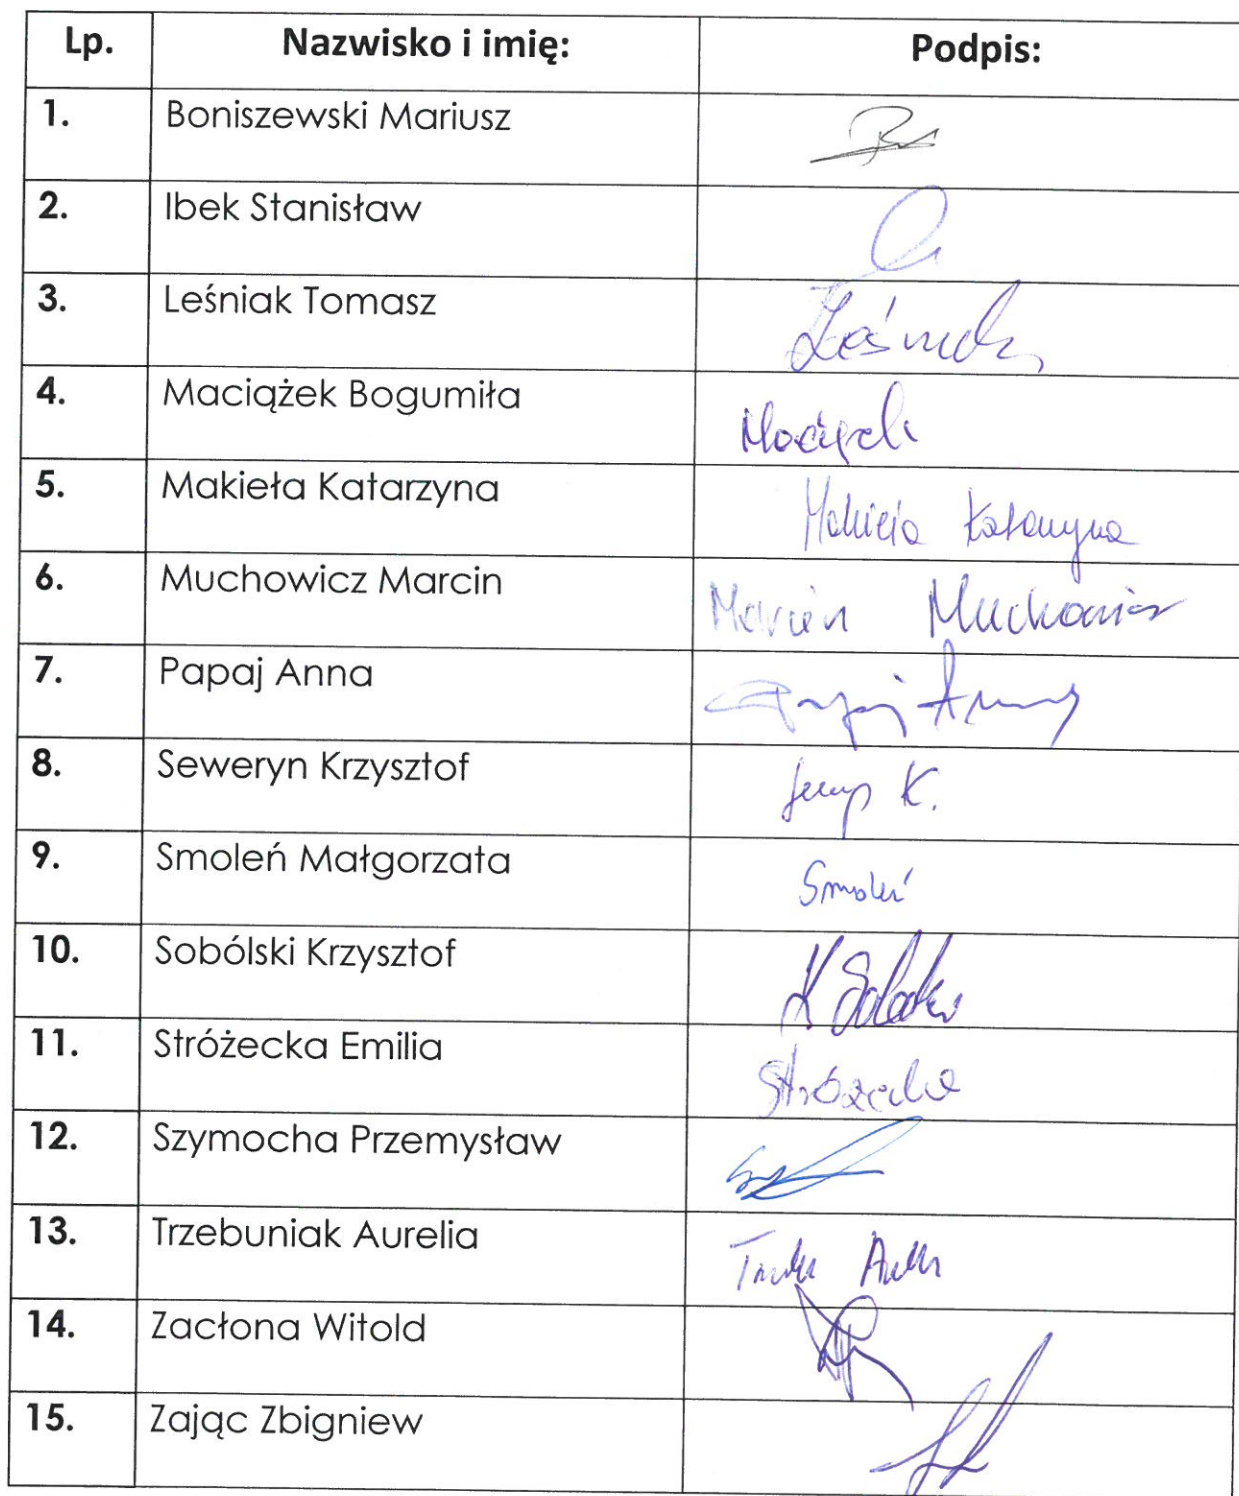 Lp. Nazwisko i imię: Podpis:
1. Boniszewski Mariusz
2. Ibek Stanisław
3. Leśniak Tomasz
4. Maciążek Bogumiła
5. Makieła Katarzyna Makieła Katarzyna
6. Muchowicz Marcin Marcin Muchowicz
7. Papaj Anna Papaj Anna
8. Seweryn Krzysztof K.
9. Smoleń Małgorzata Smoleń
10. Sobólski Krzysztof K
11. Stróżecka Emilia Stróżecka
12. Szymocha Przemysław
13. Trzebuniak Aurelia
14. Zacłona Witold
15. Zając Zbigniew